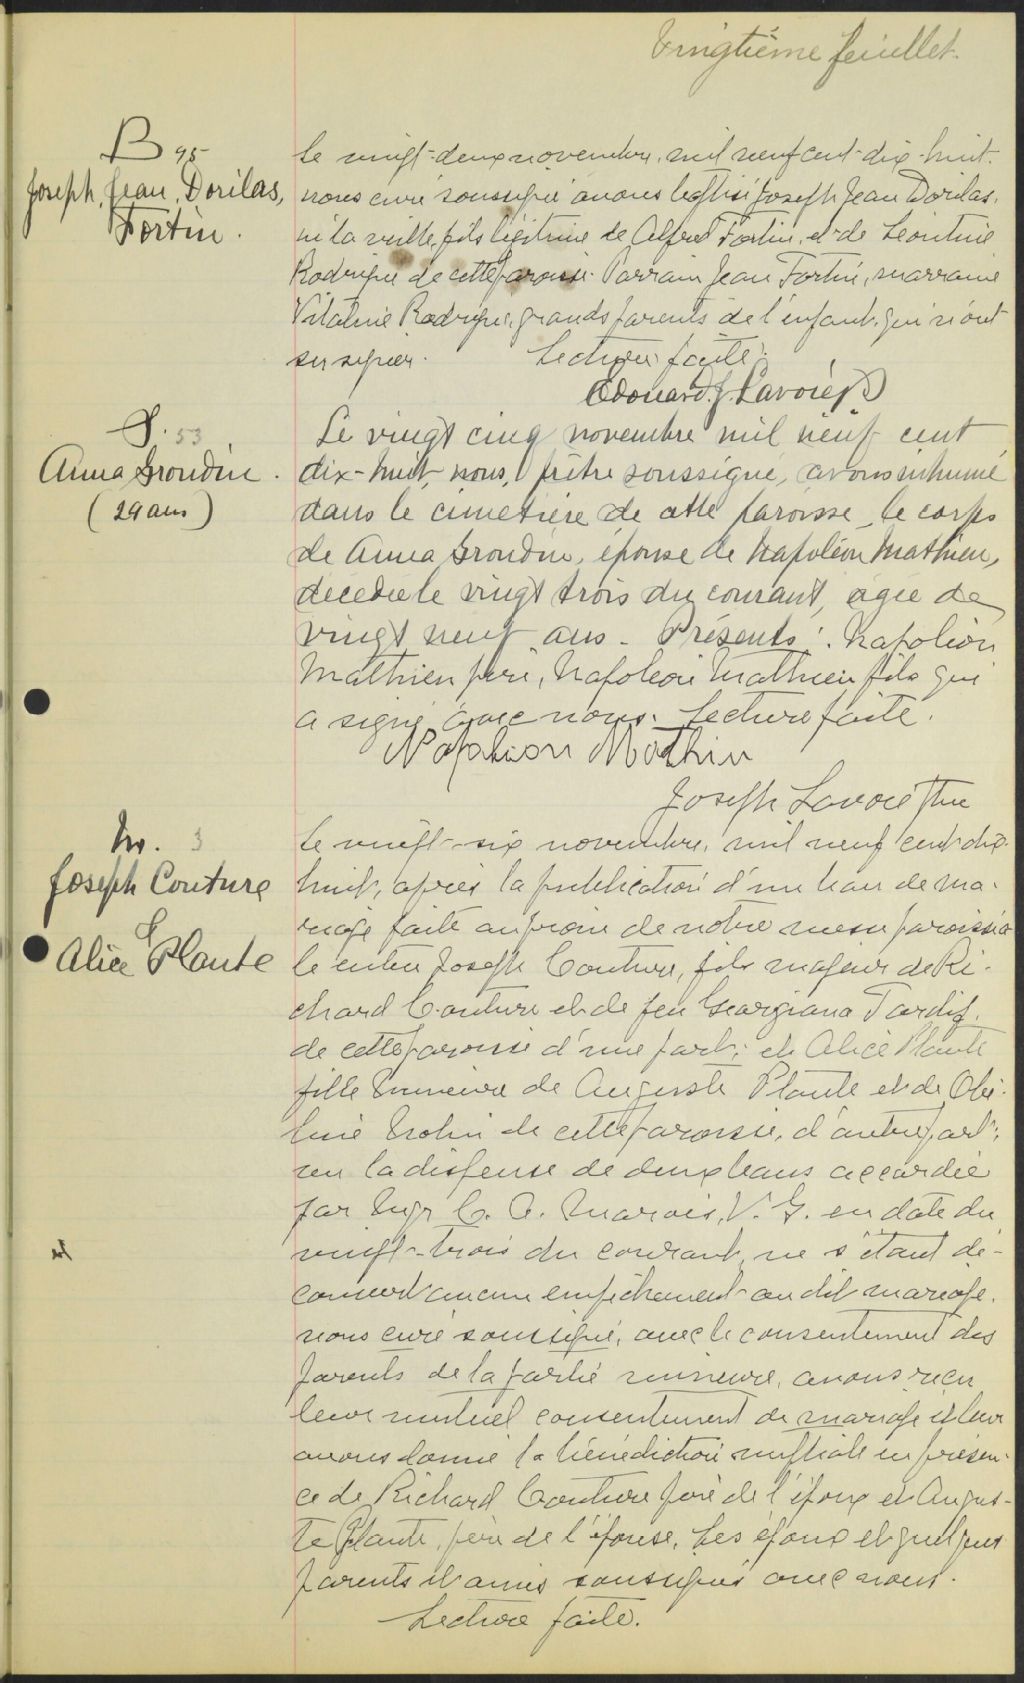 Vingtième feuillet.
B 95
Joseph, Jean, Dorilas,
Fortin.
Le vingt-deux novembre, mil neuf cent-dix-huit.
nous curé soussigné avons baptisé Joseph Jean Dorilas,
né la veille, fils légitime de Alfred Fortin, et de Léontine
Rodrigue de cette paroisse. Parrain Jean Fortin, marraine
Vitaline Rodrigue, grands parents de l'enfant, qui n'ont
su signer. Lecture faite.
Edouard J. Lavoie Ptr
S. 53
Anna Grondin.
(29 ans)
Le vingt cinq novembre mil neuf cent
dix-huit, nous, prêtre soussigné, avons inhumé
dans le cimetière de cette paroisse le corps
de Anna Grondin, épouse de Napoléon Mathieu,
décédée le vingt trois du courant, agée de
vingt neuf ans - Présents: Napoléon
Mathieu père, Napoléon Mathieu fils qui
a signé avec nous. Lecture faite.
Napoleon Mathieu
Joseph Lavoie Ptre
M. 3
Joseph Couture
&
Alice Plante
Le vingt-six novembre, mil neuf cent dix-
huit, après la publication d'un ban de ma-
riage faite au prône de notre messe paroissia
le entre Joseph Couture, fils majeur de Ri-
chard Couture et de feu Georgiana Tardif,
de cette paroisse d'une part; et Alice Plante
fille mineure de Auguste Plante et de
de cette paroisse, d'autre part;
vu la dispense de deux bans accordée
par Mgr C. A. Marois, V. G. en date du
vingt-trois du courant, ne s'étant dé-
couvert aucun empêchement au dit mariage.
nous curé soussigné, avec le consentement des
parents de la partie mineure, avons reçu
leur mutuel consentement de mariage et leur
avons donné la bénédiction nuptiale en présen-
ce de Richard Couture père de l'époux et Augus-
te Plante, père de l'épouse. Les époux et quelques
parents et amis soussignés avec nous.
Lecture faite.